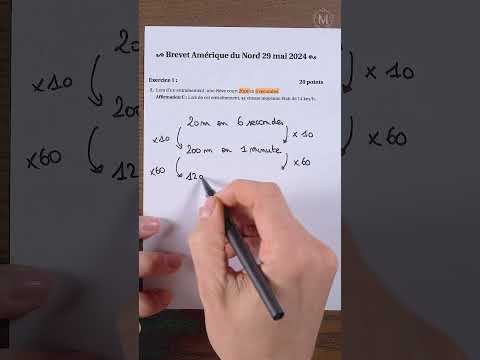 M
Brevet Amérique du Nord 29 mai 2024
Exercice 1 : 20 points
Lors d'un entraînement, une élève court 20m en 6 secondes.
Affirmation C : Lors de cet entraînement, sa vitesse moyenne était de 14 km/h.
20m en 6 secondes
x10 x 10
200m en 1 minute
x60 x 60
120